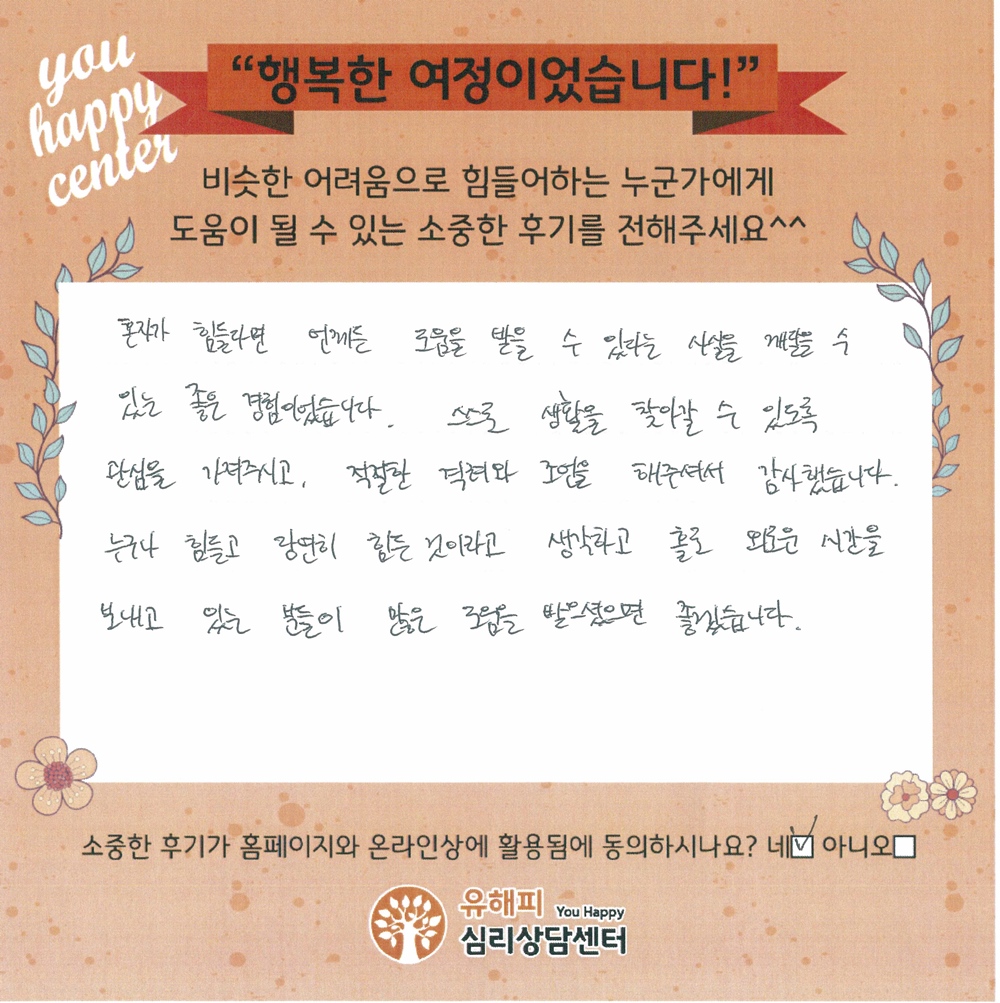 you
happy
center
“행복한 여정이었습니다!”
비슷한 어려움으로 힘들어하는 누군가에게
도움이 될 수 있는 소중한 후기를 전해주세요^^
혼자가 힘들다면 언제든 도움을 받을 수 있다는 사실을 깨달을 수
있는 좋은 경험이었습니다. 스스로 생활을 찾아갈 수 있도록
관심을 가져주시고, 적절한 격려와 조언을 해주셔서 감사했습니다.
누구나 힘들고 당연히 힘든 것이라고 생각하고 홀로 외로운 시간을
보내고 있는 분들이 많은 도움을 받으셨으면 좋겠습니다.
소중한 후기가 홈페이지와 온라인상에 활용됨에 동의하시나요? 네☑ 아니오☐
유해피 You Happy
심리상담센터